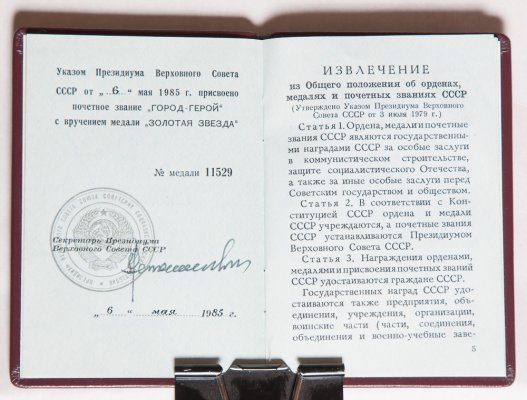 Указом Президиума Верховного Совета
СССР от „ 6 “ мая 1985 г. присвоено
почетное звание „ГОРОД-ГЕРОЙ“
с вручением медали „ЗОЛОТАЯ ЗВЕЗДА“
№ медали 11529
Секретарь Президиума
Верховного Совета СССР
„ 6 “ мая 1985 г.
ИЗВЛЕЧЕНИЕ
из Общего положения об орденах,
медалях и почетных званиях СССР
(Утверждено Указом Президиума Верховного
Совета СССР от 3 июля 1979 г.)
Статья 1. Ордена, медали и почетные
звания СССР являются государственны-
ми наградами СССР за особые заслуги
в коммунистическом строительстве,
защите социалистического Отечества,
а также за иные особые заслуги перед
Советским государством и обществом.
Статья 2. В соответствии с Кон-
ституцией СССР ордена и медали
СССР учреждаются, а почетные звания
СССР устанавливаются Президиумом
Верховного Совета СССР.
Статья 3. Награждения орденами,
медалями и присвоения почетных званий
СССР удостаиваются граждане СССР.
Государственных наград СССР удо-
стаиваются также предприятия, объ-
единения, учреждения, организации,
воинские части (части, соединения,
объединения и военно-учебные заве-
5